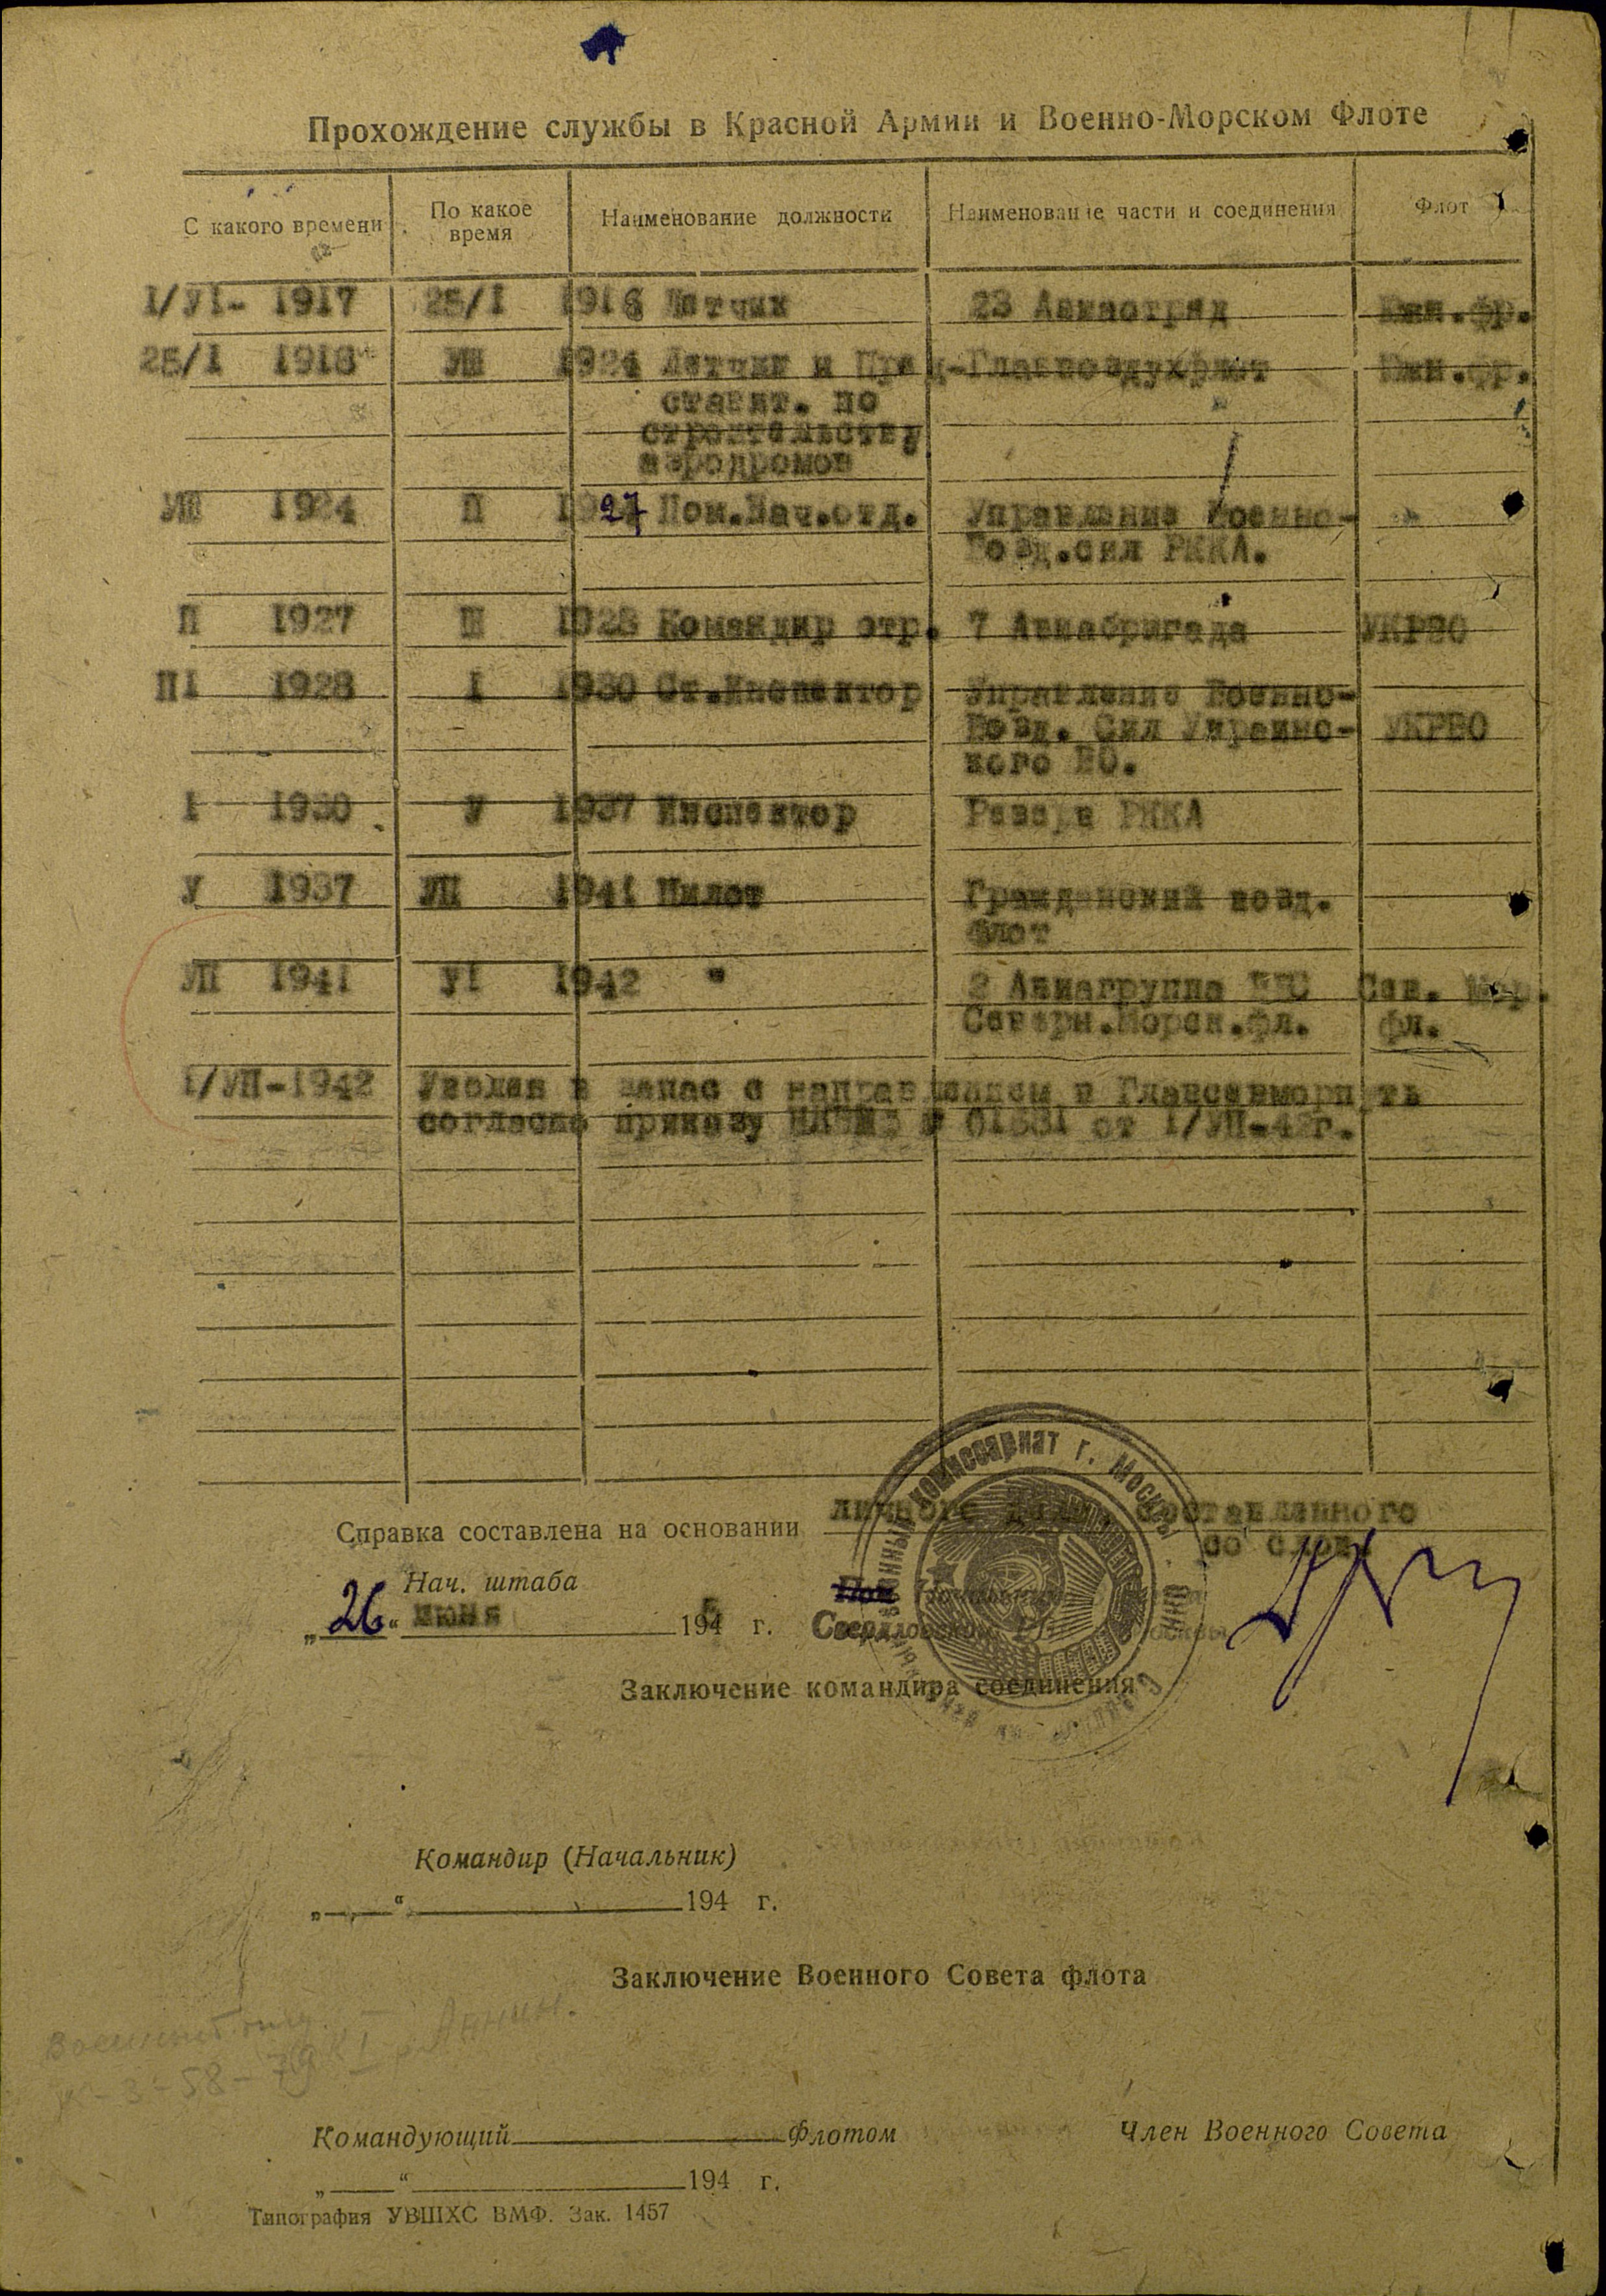 Прохождение службы в Красной Армии и Военно-Морском Флоте
С какого времени По какое время Наименование должности Наименование части и соединения Флот
1/У1- 1917 25/1 1918 Летчик 23 Авиаотряд Южн.фр.
25/1 1918 УШ 1924 Летчик и Пред-Главвоздухфлот Южн.фр.
ставит. по
строительству
аэродромов
УШ 1924 П 1927 Пом.Нач.отд. Управление Военно-
Возд.сил РККА.
П 1927 Ш 1928 Командир отр. 7 Авиабригада УКРВО
П1 1928 1 1930 Ст.Инспектор Управление Военно-
Возд. Сил Украинс- УКРВО
кого ВО.
1 1930 У 1937 Инспектор Резерв РККА
У 1937 УП 1941 Пилот Гражданский возд.
флот
УП 1941 У1 1942 " 2 Авиагруппа ВВС Сев. Мор.
Северн.Морск.фл. фл.
1/УП-1942 Уволен в запас с направлением в Главсевморпуть
согласно приказу НКВМФ № 01331 от 1/УП-42г.
Справка составлена на основании личного дела, составленного
со слов
Нач. штаба
„26“ июня 1945 г.
Свердловского
Военный комиссариат г. Москвы
Заключение командира соединения
Командир (Начальник)
„___“ 194 г.
Заключение Военного Совета флота
Командующий флотом Член Военного Совета
„___“ 194 г.
Типография УВШХС ВМФ. Зак. 1457